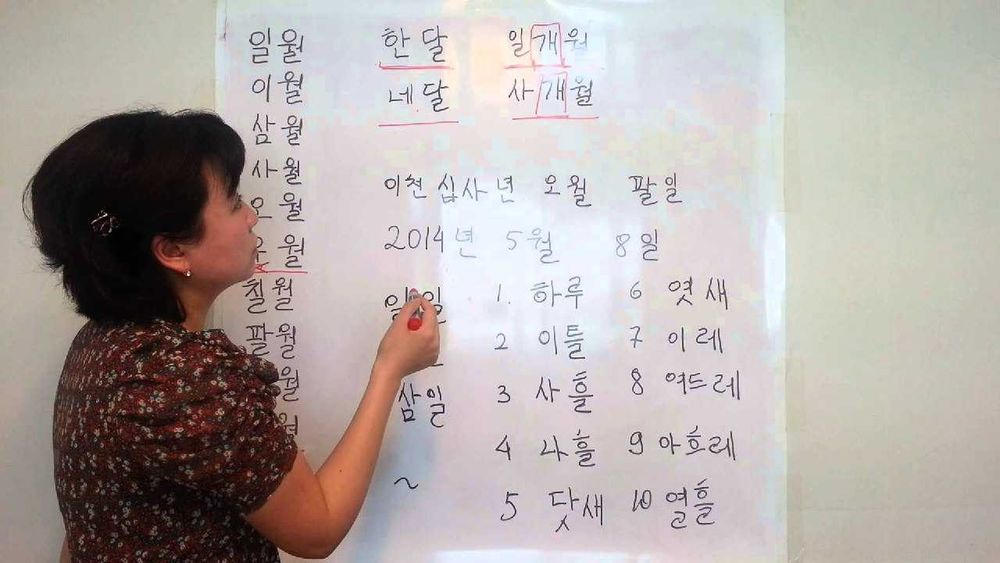 일월 한달 일개월
이월 네달 사개월
삼월
사월 이천십사년 오월 팔일
오월
월 2014년 5월 8일
칠월 일일 1. 하루 6 엿새
팔월 2 이틀 7 이레
월 삼일 3 사흘 8 여드레
월 4 나흘 9 아흐레
~ 5 닷새 10 열흘